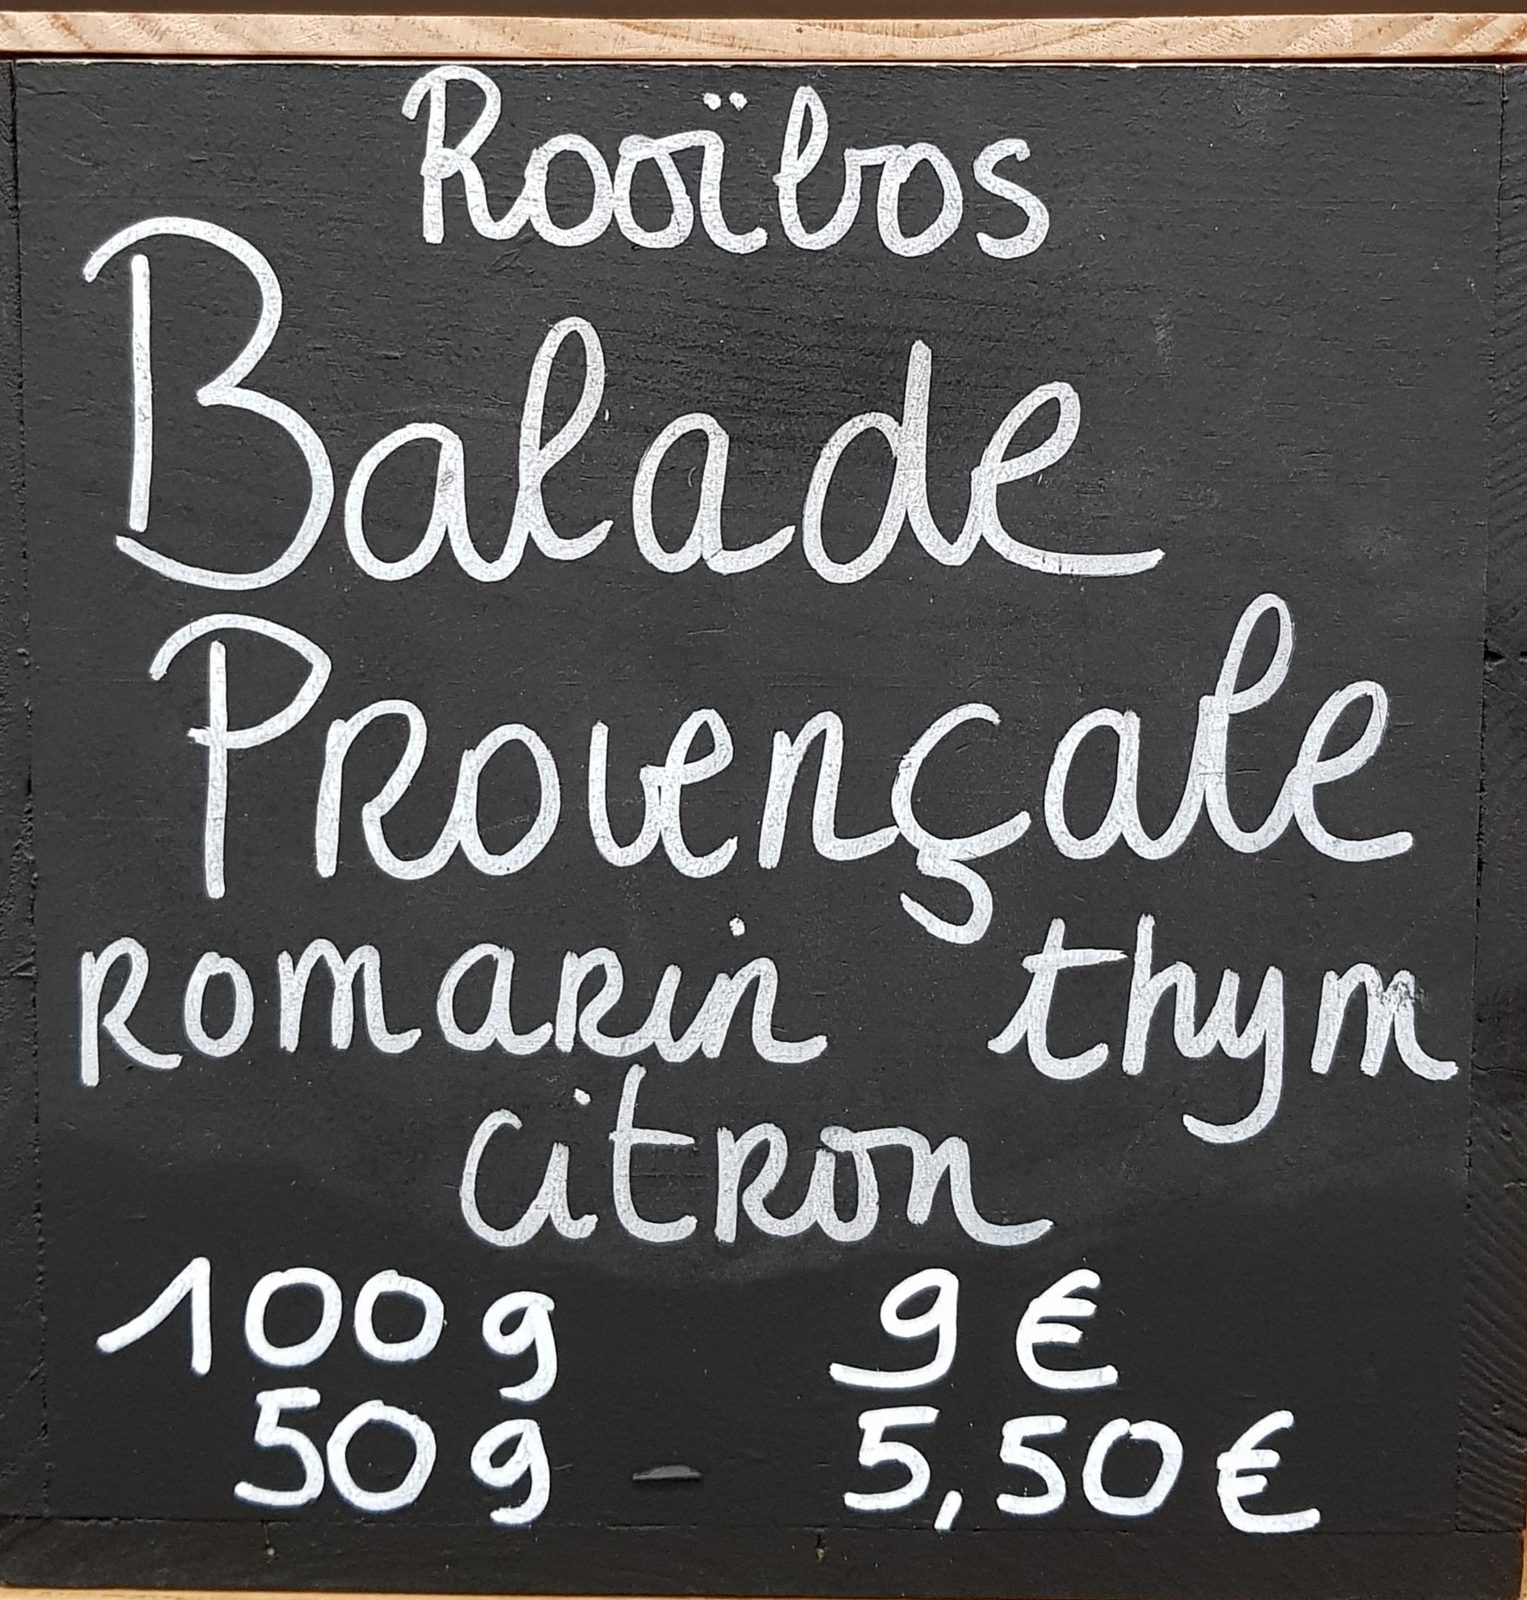 Rooïbos
Balade
Provençale
romarin thym
citron
100g 9€
50g 5,50€